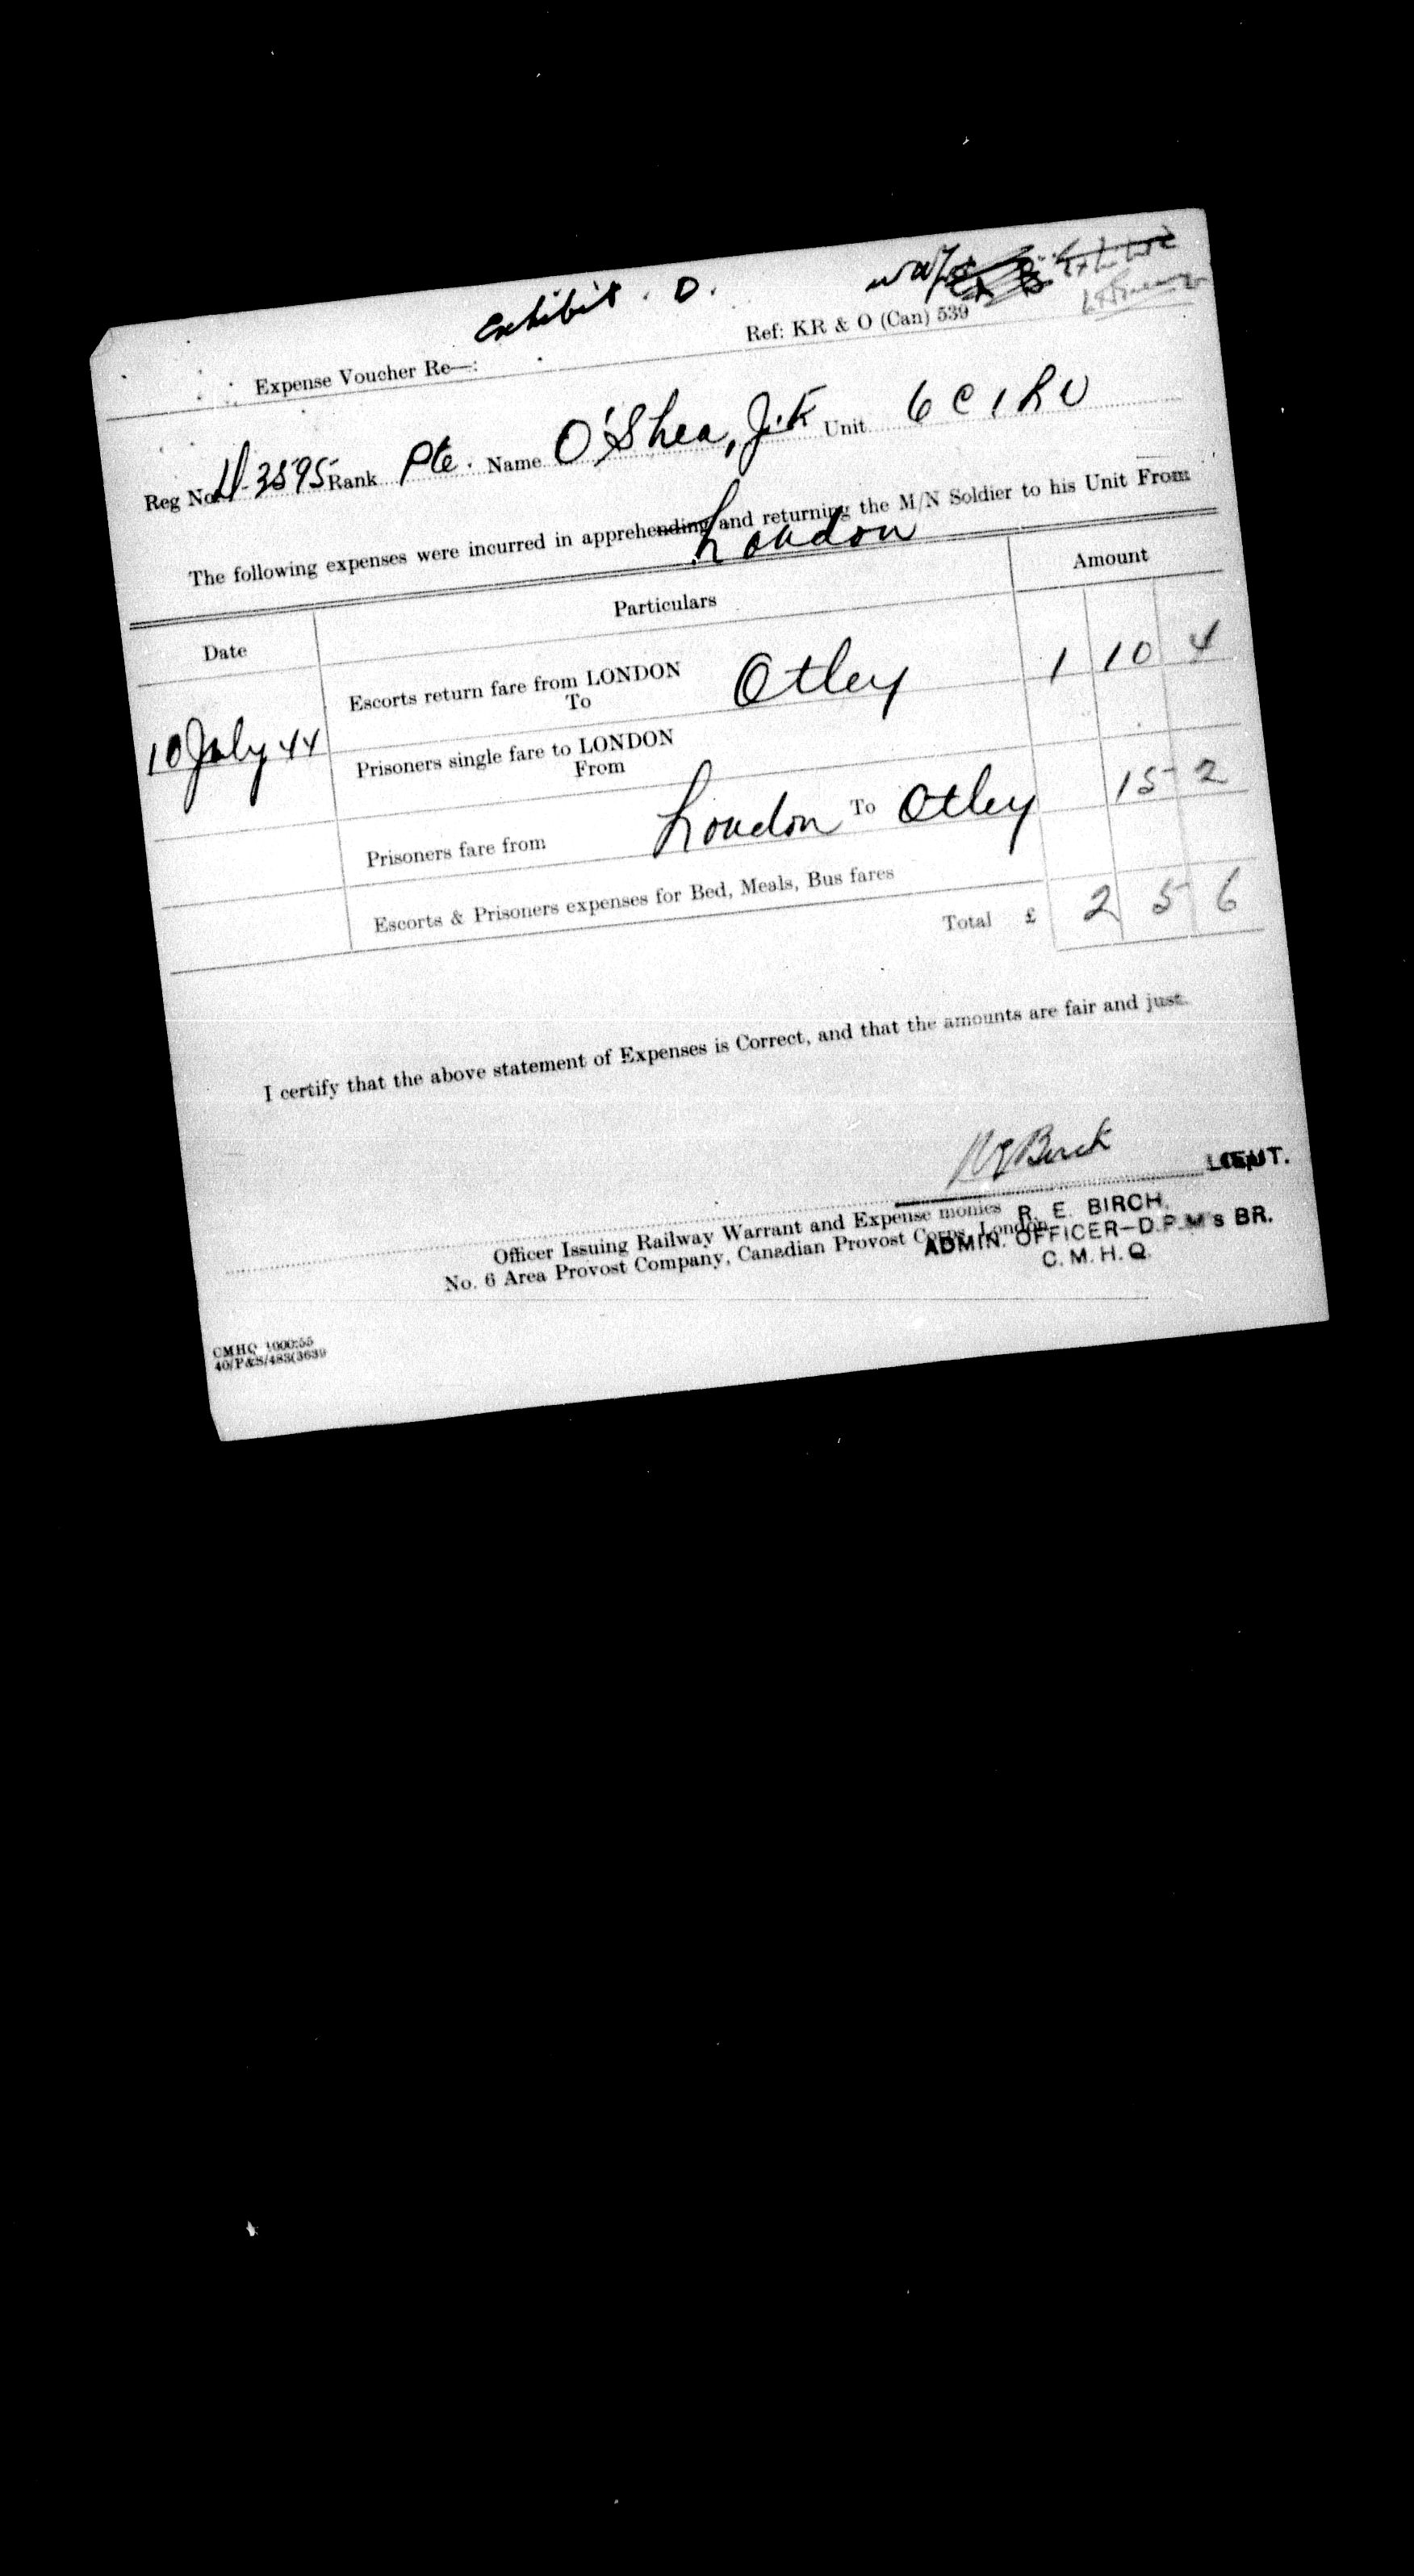 Exhibit . D.
Expense Voucher Re—: Ref: KR & O (Can) 539
Reg No. D-3595 Rank Pte. Name O'Shea, J.K Unit 6 C I R U
The following expenses were incurred in apprehending and returning the M/N Soldier to his Unit From
London
Date Particulars Amount
Escorts return fare from LONDON
To Otley 1 10 4
10 July 44
Prisoners single fare to LONDON
From
Prisoners fare from London To Otley 15 2
Escorts & Prisoners expenses for Bed, Meals, Bus fares
Total £ 2 5 6
I certify that the above statement of Expenses is Correct, and that the amounts are fair and just.
R E Birch
LIEUT.
Officer Issuing Railway Warrant and Expense monies
No. 6 Area Provost Company, Canadian Provost Corps, London
R. E. BIRCH,
ADMIN. OFFICER—D.P.M's BR.
C. M. H. Q.
CMHQ 1000:55
40/P&S/483(3639